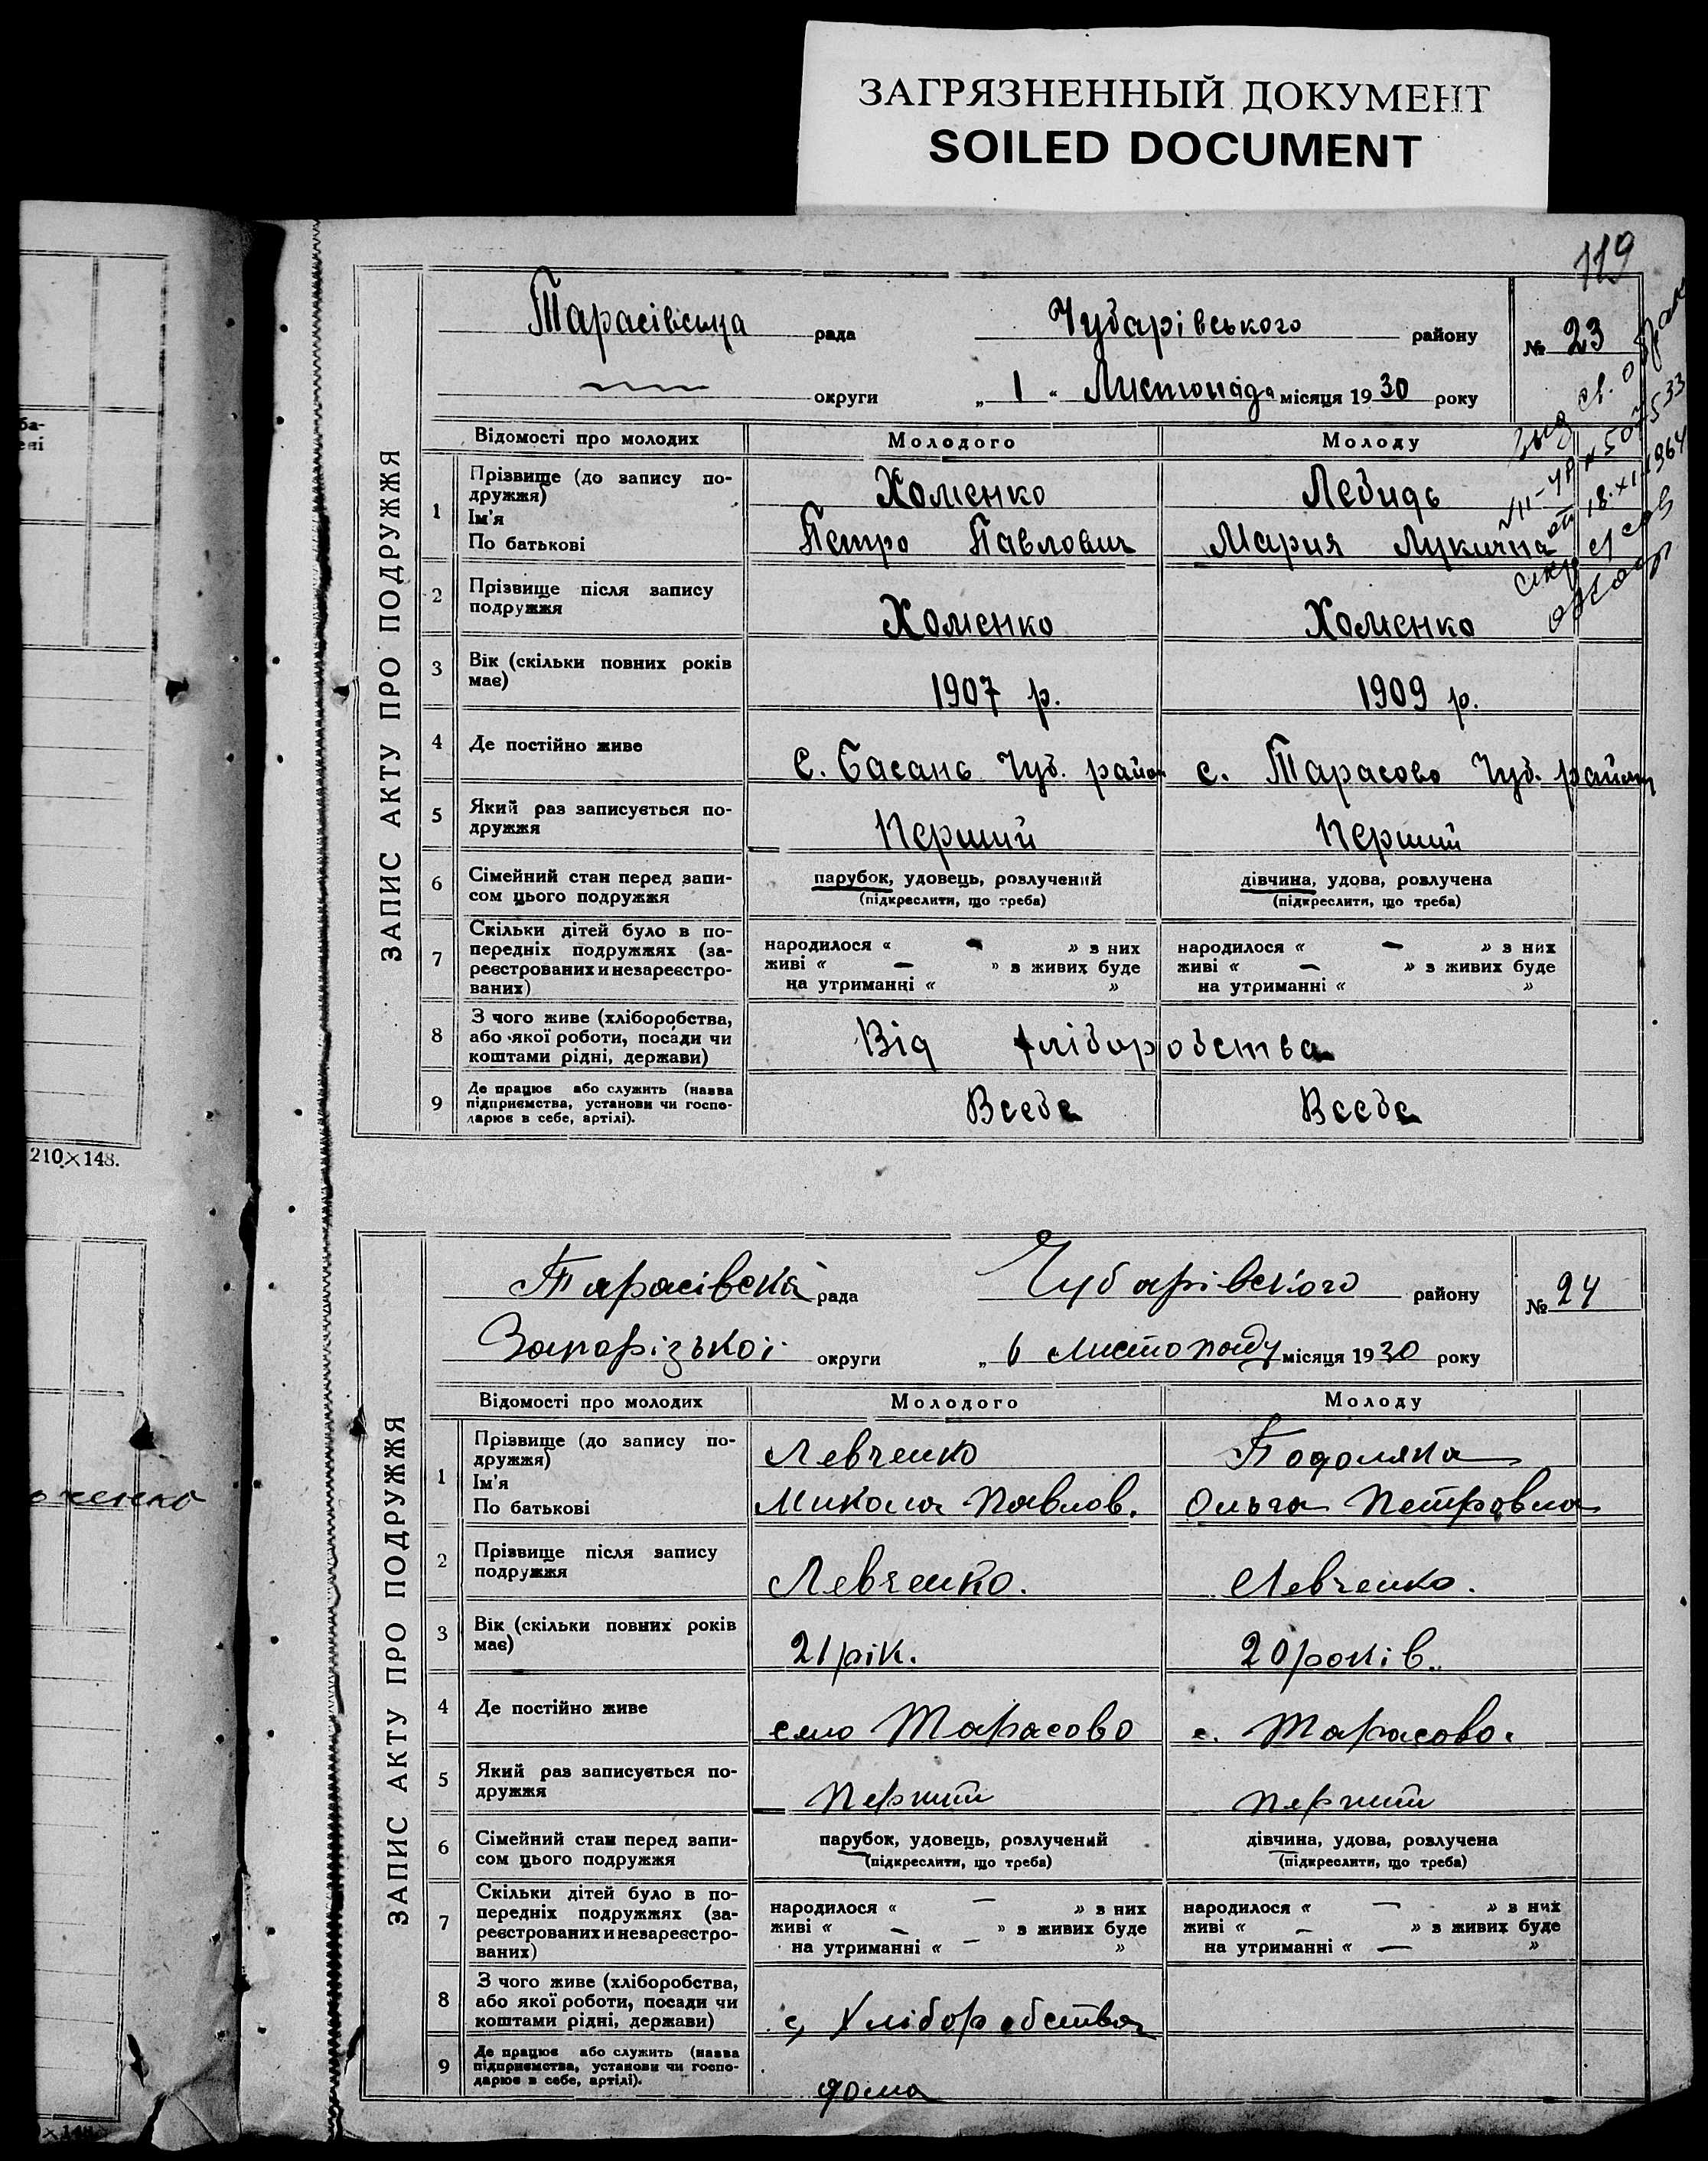 ЗАГРЯЗНЕННЫЙ ДОКУМЕНТ
SOILED DOCUMENT
119
ЗАПИС АКТУ ПРО ПОДРУЖЖЯ
Тарасівська рада Чубарівського району № 23
округи „ 1 “ Листопада місяця 1930 року
Відомості про молодих Молодого Молоду
1 Прізвище (до запису по-
дружжя) Хоменко Лебидь
Ім'я
По батькові Петро Павлович Мария Лукична
2 Прізвище після запису
подружжя Хоменко Хоменко
3 Вік (скільки повних років
має) 1907 р. 1909 р.
4 Де постійно живе С. Басань Чуб. район с. Тарасово Чуб. район
5 Який раз записується по-
дружжя Перший Перший
6 Сімейний стан перед запи- парубок, удовець, розлучений дівчина, удова, розлучена
сом цього подружжя (підкреслити, що треба) (підкреслити, що треба)
7 Скільки дітей було в по-
передніх подружжях (за-
реєстрованих и незареєстро-
ваних)
народилося « — » з них народилося « — » з них
живі « — » в живих буде живі « — » в живих буде
на утриманні « » на утриманні « »
8 З чого живе (хліборобства,
або якої роботи, посади чи
коштами рідні, держави) Від хліборобства
9 Де працює або служить (назва
підприємства, установи чи госпо-
дарює в себе, артілі). Всебе Всебе
18.XI.1964
210×148.
ба-
ені
ЗАПИС АКТУ ПРО ПОДРУЖЖЯ
Тарасівска рада Чубарівского району № 24
Запорізької округи „ 6 Листопаду місяця 1930 року
Відомості про молодих Молодого Молоду
1 Прізвище (до запису по-
дружжя) Левченко Подоляка
Ім'я
По батькові Микола Павлов. Ольга Петровна
2 Прізвище після запису
подружжя Левченко. Левченко.
3 Вік (скільки повних років
має) 21 рік. 20 років.
4 Де постійно живе село Тарасово с. Тарасово.
5 Який раз записується по-
дружжя Перший перший
6 Сімейний стан перед запи- парубок, удовець, розлучений дівчина, удова, розлучена
сом цього подружжя (підкреслити, що треба) (підкреслити, що треба)
7 Скільки дітей було в по-
передніх подружжях (за-
реєстрованих и незареєстро-
ваних)
народилося « — » з них народилося « — » з них
живі « — » в живих буде живі « — » в живих буде
на утриманні « — » на утриманні « — »
8 З чого живе (хліборобства,
або якої роботи, посади чи
коштами рідні, держави) с, Хліборобства
9 Де працює або служить (назва
підприємства, установи чи госпо-
дарює в себе, артілі). дома